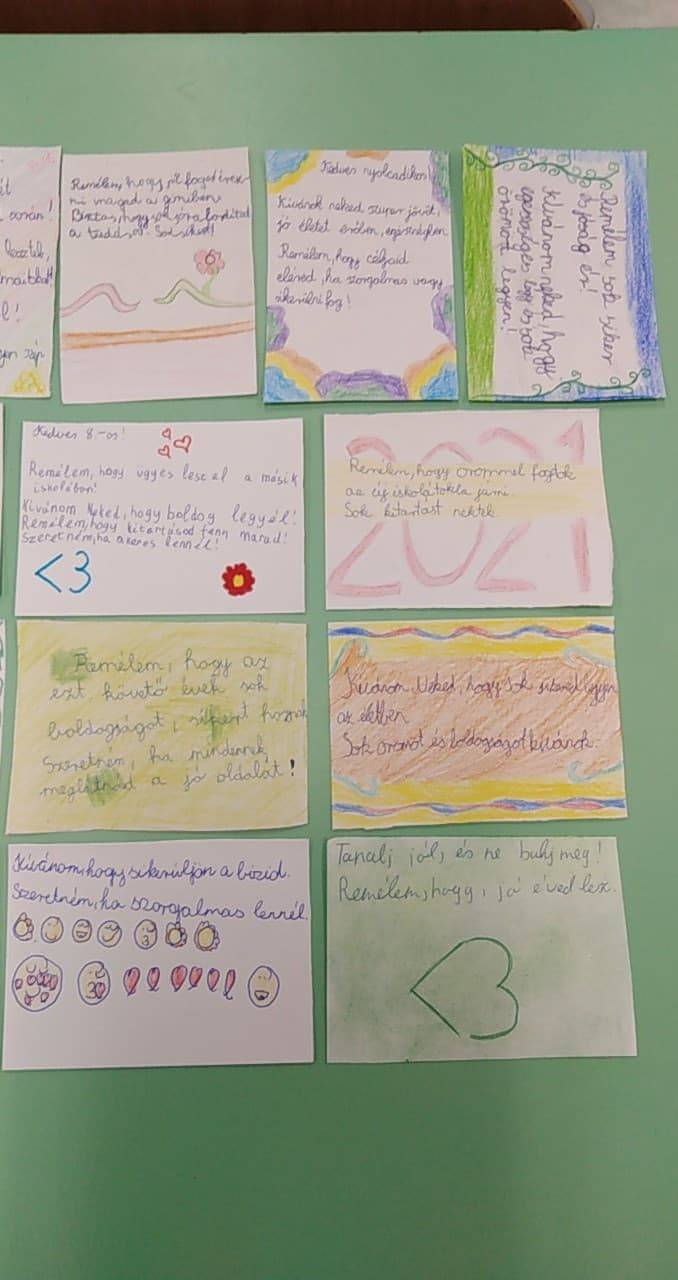 ét
során!
lesztek,
maitkat!
l!
gyen szép
Remélem, hogy jól fogod érez-
ni magad a gimiben
Biztos, hogy sok jóra fordítod
a tudásod. Sok sikert!
Kedves nyolcadikos!
Kívánok neked szuper jövőt,
jó életet erőben, egészségben.
Remélem, hogy céljaid
eléred, ha szorgalmas vagy
sikerülni fog!
Remélem sok siker
és jóság ér!
Kívánom neked, hogy
egészséges légy és sok
örömöd legyen!
Kedves 8.-os!
Remélem, hogy ügyes leszel a másik
iskolában!
Kívánom Neked, hogy boldog legyél!
Remélem, hogy kitartásod fenn marad!
Szeretném, ha sikeres lennél!
<3
2021
Remélem, hogy örömmel fogtok
az új iskolátokba járni.
Sok kitartást nektek
Remélem, hogy az
ezt követő évek sok
boldogságot, sikert hoznak
Szeretném, ha mindennek
meglátnád a jó oldalát!
Kívánom Neked, hogy sok sikered legyen
az életben
Sok örömöt és boldogságot kívánok.
Kívánom, hogy sikerüljön a bizid.
Szeretném, ha szorgalmas lennél.
Tanulj jól, és ne bukj meg!
Remélem, hogy, jó éved lesz.